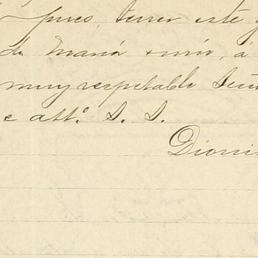 pues, tener este
de Maria
muy respetable Señ
e atto. S. S.
Dioni